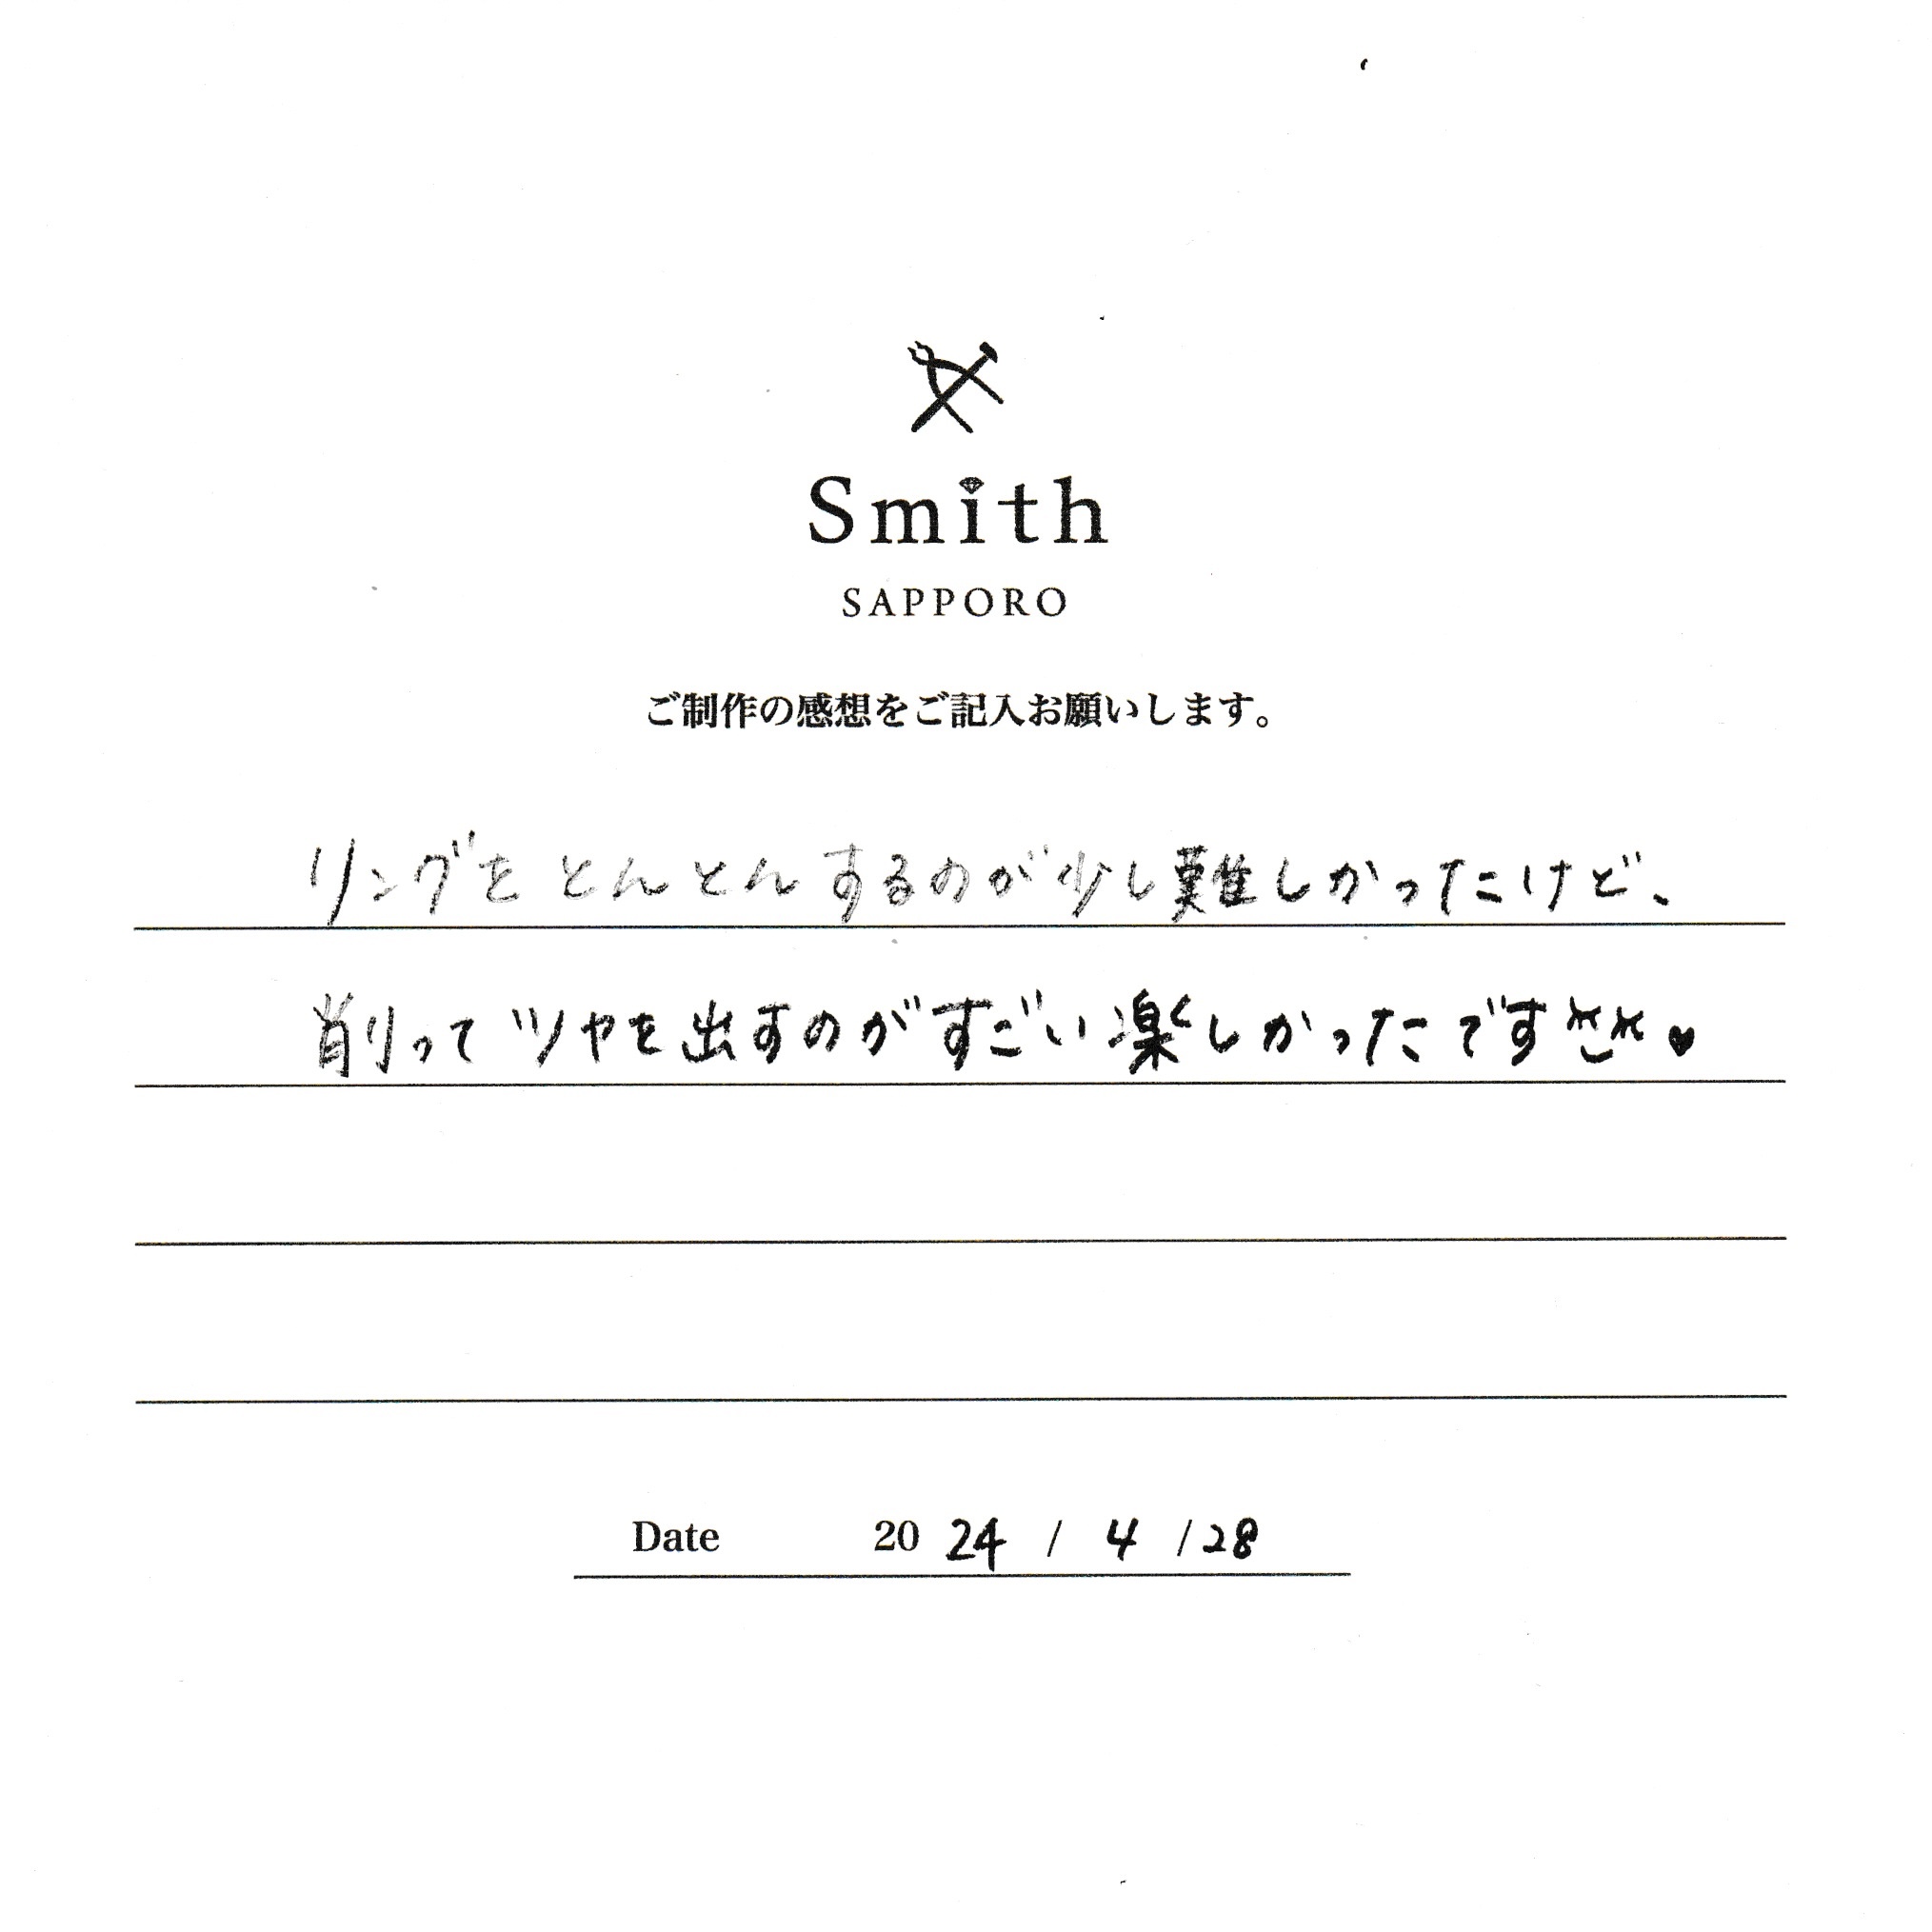 Smith
SAPPORO
ご制作の感想をご記入お願いします。
リングをとんとんするのが少し難しかったけど、
削ってツヤを出すのがすごい楽しかったです♥
Date 2024 / 4 / 28